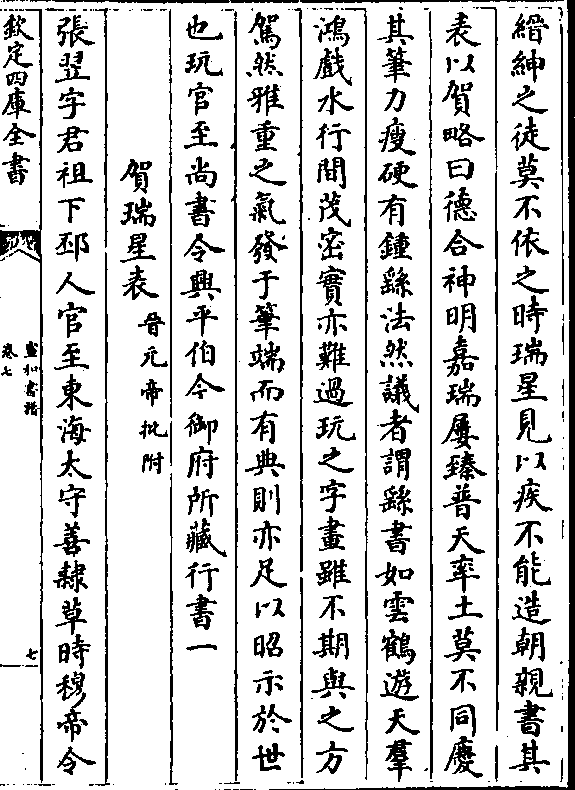 縉紳之徒莫不依之時瑞星見以疾不能造朝親書其
表以賀略曰德合神明嘉瑞屢臻普天率土莫不同慶
其筆力瘦硬有鍾繇法然議者謂繇書如雲鶴遊天羣
鴻戲水行間茂密實亦難過玩之字畫雖不期與之方
駕然雅重之氣發于筆端而有典則亦足以昭示於世
也玩官至尚書令興平伯今御府所藏行書一
賀瑞星表 晉元帝批附
張翌字君祖下邳人官至東海太守善隸草時穆帝令
欽定四庫全書
宣和書譜
卷七
七